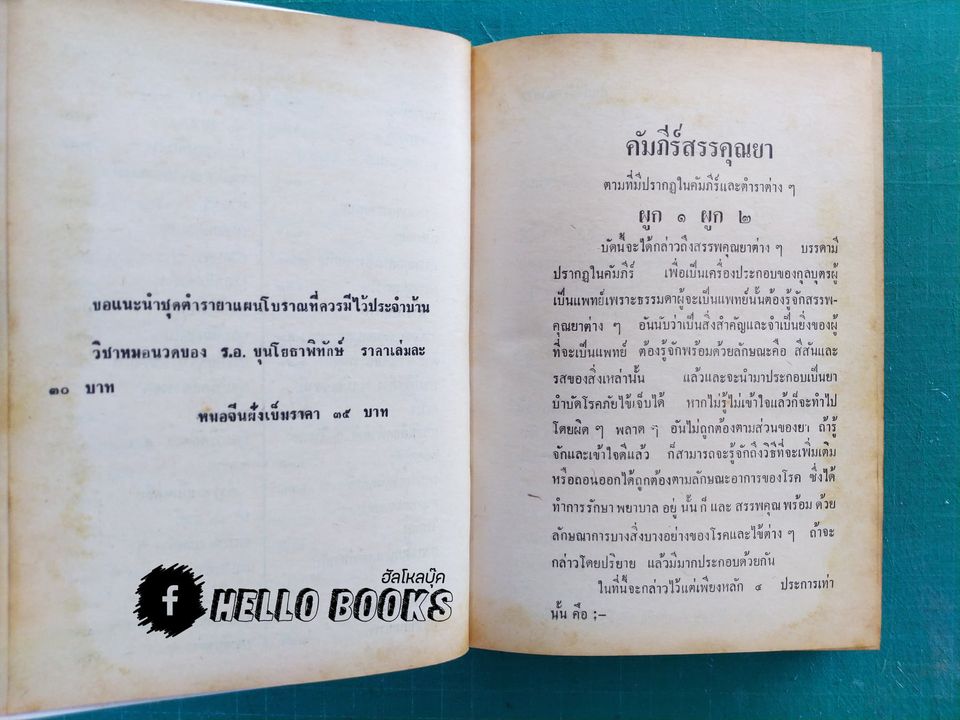 ขอแนะนำชุดตำรายาแผนโบราณที่ควรมีไว้ประจำบ้าน
วิชาหมอนวดของ ร.อ. ขุนโยธาพิทักษ์ ราคาเล่มละ
๓๐ บาท
หมอจีนฝังเข็มราคา ๓๕ บาท
ฮัลโหลบุ๊ค
f HELLO BOOKS
คัมภีร์สรรคุณยา
ตามที่มีปรากฏในคัมภีร์และตำราต่าง ๆ
ผูก ๑ ผูก ๒
บัดนี้จะได้กล่าวถึงสรรพคุณยาต่าง ๆ บรรดามี
ปรากฏในคัมภีร์ เพื่อเป็นเครื่องประกอบของกุลบุตรผู้
เป็นแพทย์เพราะธรรมดาผู้จะเป็นแพทย์นั้นต้องรู้จักสรรพ-
คุณยาต่าง ๆ อันนับว่าเป็นสิ่งสำคัญและจำเป็นยิ่งของผู้
ที่จะเป็นแพทย์ ต้องรู้จักพร้อมด้วยลักษณะคือ สีสันและ
รสของสิ่งเหล่านั้น แล้วและจะนำมาประกอบเป็นยา
บำบัดโรคภัยไข้เจ็บได้ หากไม่รู้ไม่เข้าใจแล้วก็จะทำไป
โดยผิด ๆ พลาด ๆ อันไม่ถูกต้องตามส่วนของยา ถ้ารู้
จักและเข้าใจดีแล้ว ก็สามารถจะรู้จักถึงวิธีที่จะเพิ่มเติม
หรือถอนออกได้ถูกต้องตามลักษณะอาการของโรค ซึ่งได้
ทำการรักษา พยาบาล อยู่ นั้น ก็ และ สรรพคุณ พร้อม ด้วย
ลักษณาการบางสิ่งบางอย่างของโรคและไข้ต่าง ๆ ถ้าจะ
กล่าวโดยปริยาย แล้วมีมากประกอบด้วยกัน
ในที่นี้จะกล่าวไว้แต่เพียงหลัก ๔ ประการเท่า
นั้น คือ ;–